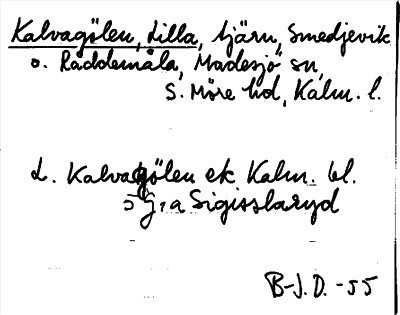 Kalvagölen, Lilla, tjärn, Smedjevik
o. Råddemåla, Madesjö sn,
S. Möre hd, Kalm. l.
L. Kalvagölen ek Kalm. bl.
Sigisslaryd
B-J.D. -55